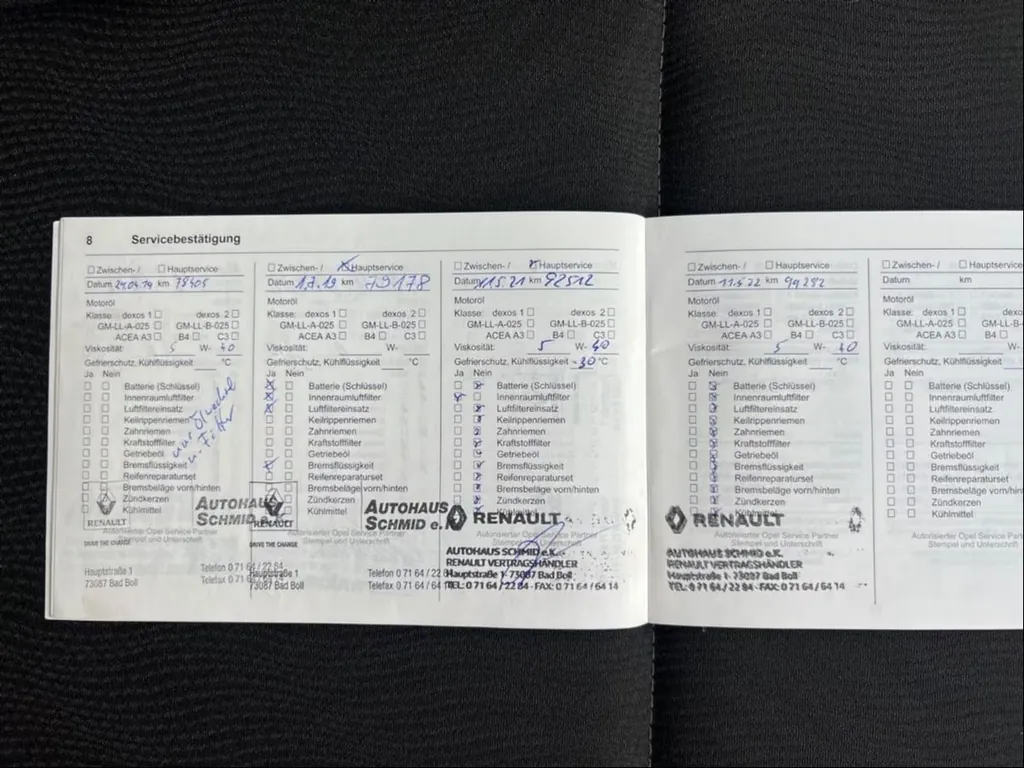 8 Servicebestätigung
☐ Zwischen- / ☐ Hauptservice
Datum 24.04.19 km 78405
Motoröl
Klasse: dexos 1 ☐ dexos 2 ☐
GM-LL-A-025 ☐ GM-LL-B-025 ☐
ACEA A3 ☐ B4 ☐ C3 ☐
Viskosität: 5 W- 40
Gefrierschutz, Kühlflüssigkeit °C
Ja Nein
Batterie (Schlüssel)
Innenraumluftfilter
Luftfiltereinsatz
Keilrippenriemen
Zahnriemen
Kraftstofffilter
Getriebeöl
Bremsflüssigkeit
Reifenreparaturset
Bremsbeläge vorn/hinten
Zündkerzen
Kühlmittel
nur Ölwechsel
u. Filter
RENAULT
AUTOHAUS
SCHMID
Autorisierter Opel Service Partner
Stempel und Unterschrift
DRIVE THE CHANGE
Hauptstraße 1
73087 Bad Boll
Telefon 0 71 64 / 22 84
Telefax 0 71 6
☐ Zwischen- / ☒ Hauptservice
Datum 1.7.19 km 79178
Motoröl
Klasse: dexos 1 ☐ dexos 2 ☐
GM-LL-A-025 ☐ GM-LL-B-025 ☐
ACEA A3 ☐ B4 ☐ C3 ☐
Viskosität: W-
Gefrierschutz, Kühlflüssigkeit °C
Ja Nein
Batterie (Schlüssel)
Innenraumluftfilter
Luftfiltereinsatz
Keilrippenriemen
Zahnriemen
Kraftstofffilter
Getriebeöl
Bremsflüssigkeit
Reifenreparaturset
Bremsbeläge vorn/hinten
Zündkerzen
Kühlmittel
RENAULT
AUTOHAUS
SCHMID e.
Autorisierter Opel Service Partner
Stempel und Unterschrift
DRIVE THE CHANGE
Hauptstraße 1
73087 Bad Boll
Telefon 0 71 64 / 22 8
Telefax 0 71 64 / 64 1
☐ Zwischen- / ☒ Hauptservice
Datum 15.21 km 82512
Motoröl
Klasse: dexos 1 ☐ dexos 2 ☐
GM-LL-A-025 ☐ GM-LL-B-025 ☐
ACEA A3 ☐ B4 ☐ C3 ☐
Viskosität: 5 W- 40
Gefrierschutz, Kühlflüssigkeit -30 °C
Ja Nein
Batterie (Schlüssel)
Innenraumluftfilter
Luftfiltereinsatz
Keilrippenriemen
Zahnriemen
Kraftstofffilter
Getriebeöl
Bremsflüssigkeit
Reifenreparaturset
Bremsbeläge vorn/hinten
Zündkerzen
Kühlmittel
RENAULT
Autorisierter Opel Service Partner
Stempel und Unterschrift
AUTOHAUS SCHMID e.K.
RENAULT VERTRAGSHÄNDLER
Hauptstraße 1 · 73087 Bad Boll
TEL: 0 71 64 / 22 84 · FAX: 0 71 64 / 64 14
☐ Zwischen- / ☐ Hauptservice
Datum 11.5.22 km 99282
Motoröl
Klasse: dexos 1 ☐ dexos 2 ☐
GM-LL-A-025 ☐ GM-LL-B-025 ☐
ACEA A3 ☐ B4 ☐ C3 ☐
Viskosität: 5 W- 40
Gefrierschutz, Kühlflüssigkeit °C
Ja Nein
Batterie (Schlüssel)
Innenraumluftfilter
Luftfiltereinsatz
Keilrippenriemen
Zahnriemen
Kraftstofffilter
Getriebeöl
Bremsflüssigkeit
Reifenreparaturset
Bremsbeläge vorn/hinten
Zündkerzen
Kühlmittel
RENAULT
Autorisierter Opel Service Partner
Stempel und Unterschrift
AUTOHAUS SCHMID e.K.
RENAULT VERTRAGSHÄNDLER
Hauptstraße 1 · 73087 Bad Boll
TEL: 0 71 64 / 22 84 · FAX: 0 71 64 / 64 14
☐ Zwischen- / ☐ Hau
Datum km
Motoröl
Klasse: dexos 1 ☐
GM-LL-A-025 ☐ GM-
ACEA A3 ☐ B4
Viskosität: W-
Gefrierschutz, Kühlflüssigke
Ja Nein
Batterie (Schlüs
Innenraumluftfilt
Luftfiltereinsatz
Keilrippenrieme
Zahnriemen
Kraftstofffilter
Getriebeöl
Bremsflüssigkei
Reifenreparatur
Bremsbeläge vo
Zündkerzen
Kühlmittel
Autorisierter Opel Se
Stempel und Un